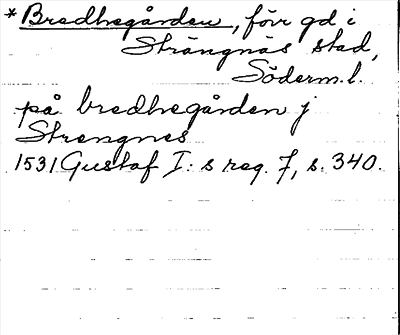 *Bredhegården, förr gd i
Strängnäs stad,
Söderm. l.
på bredhegården j
Strengnes
1531 Gustaf I:s reg. 7, s. 340.